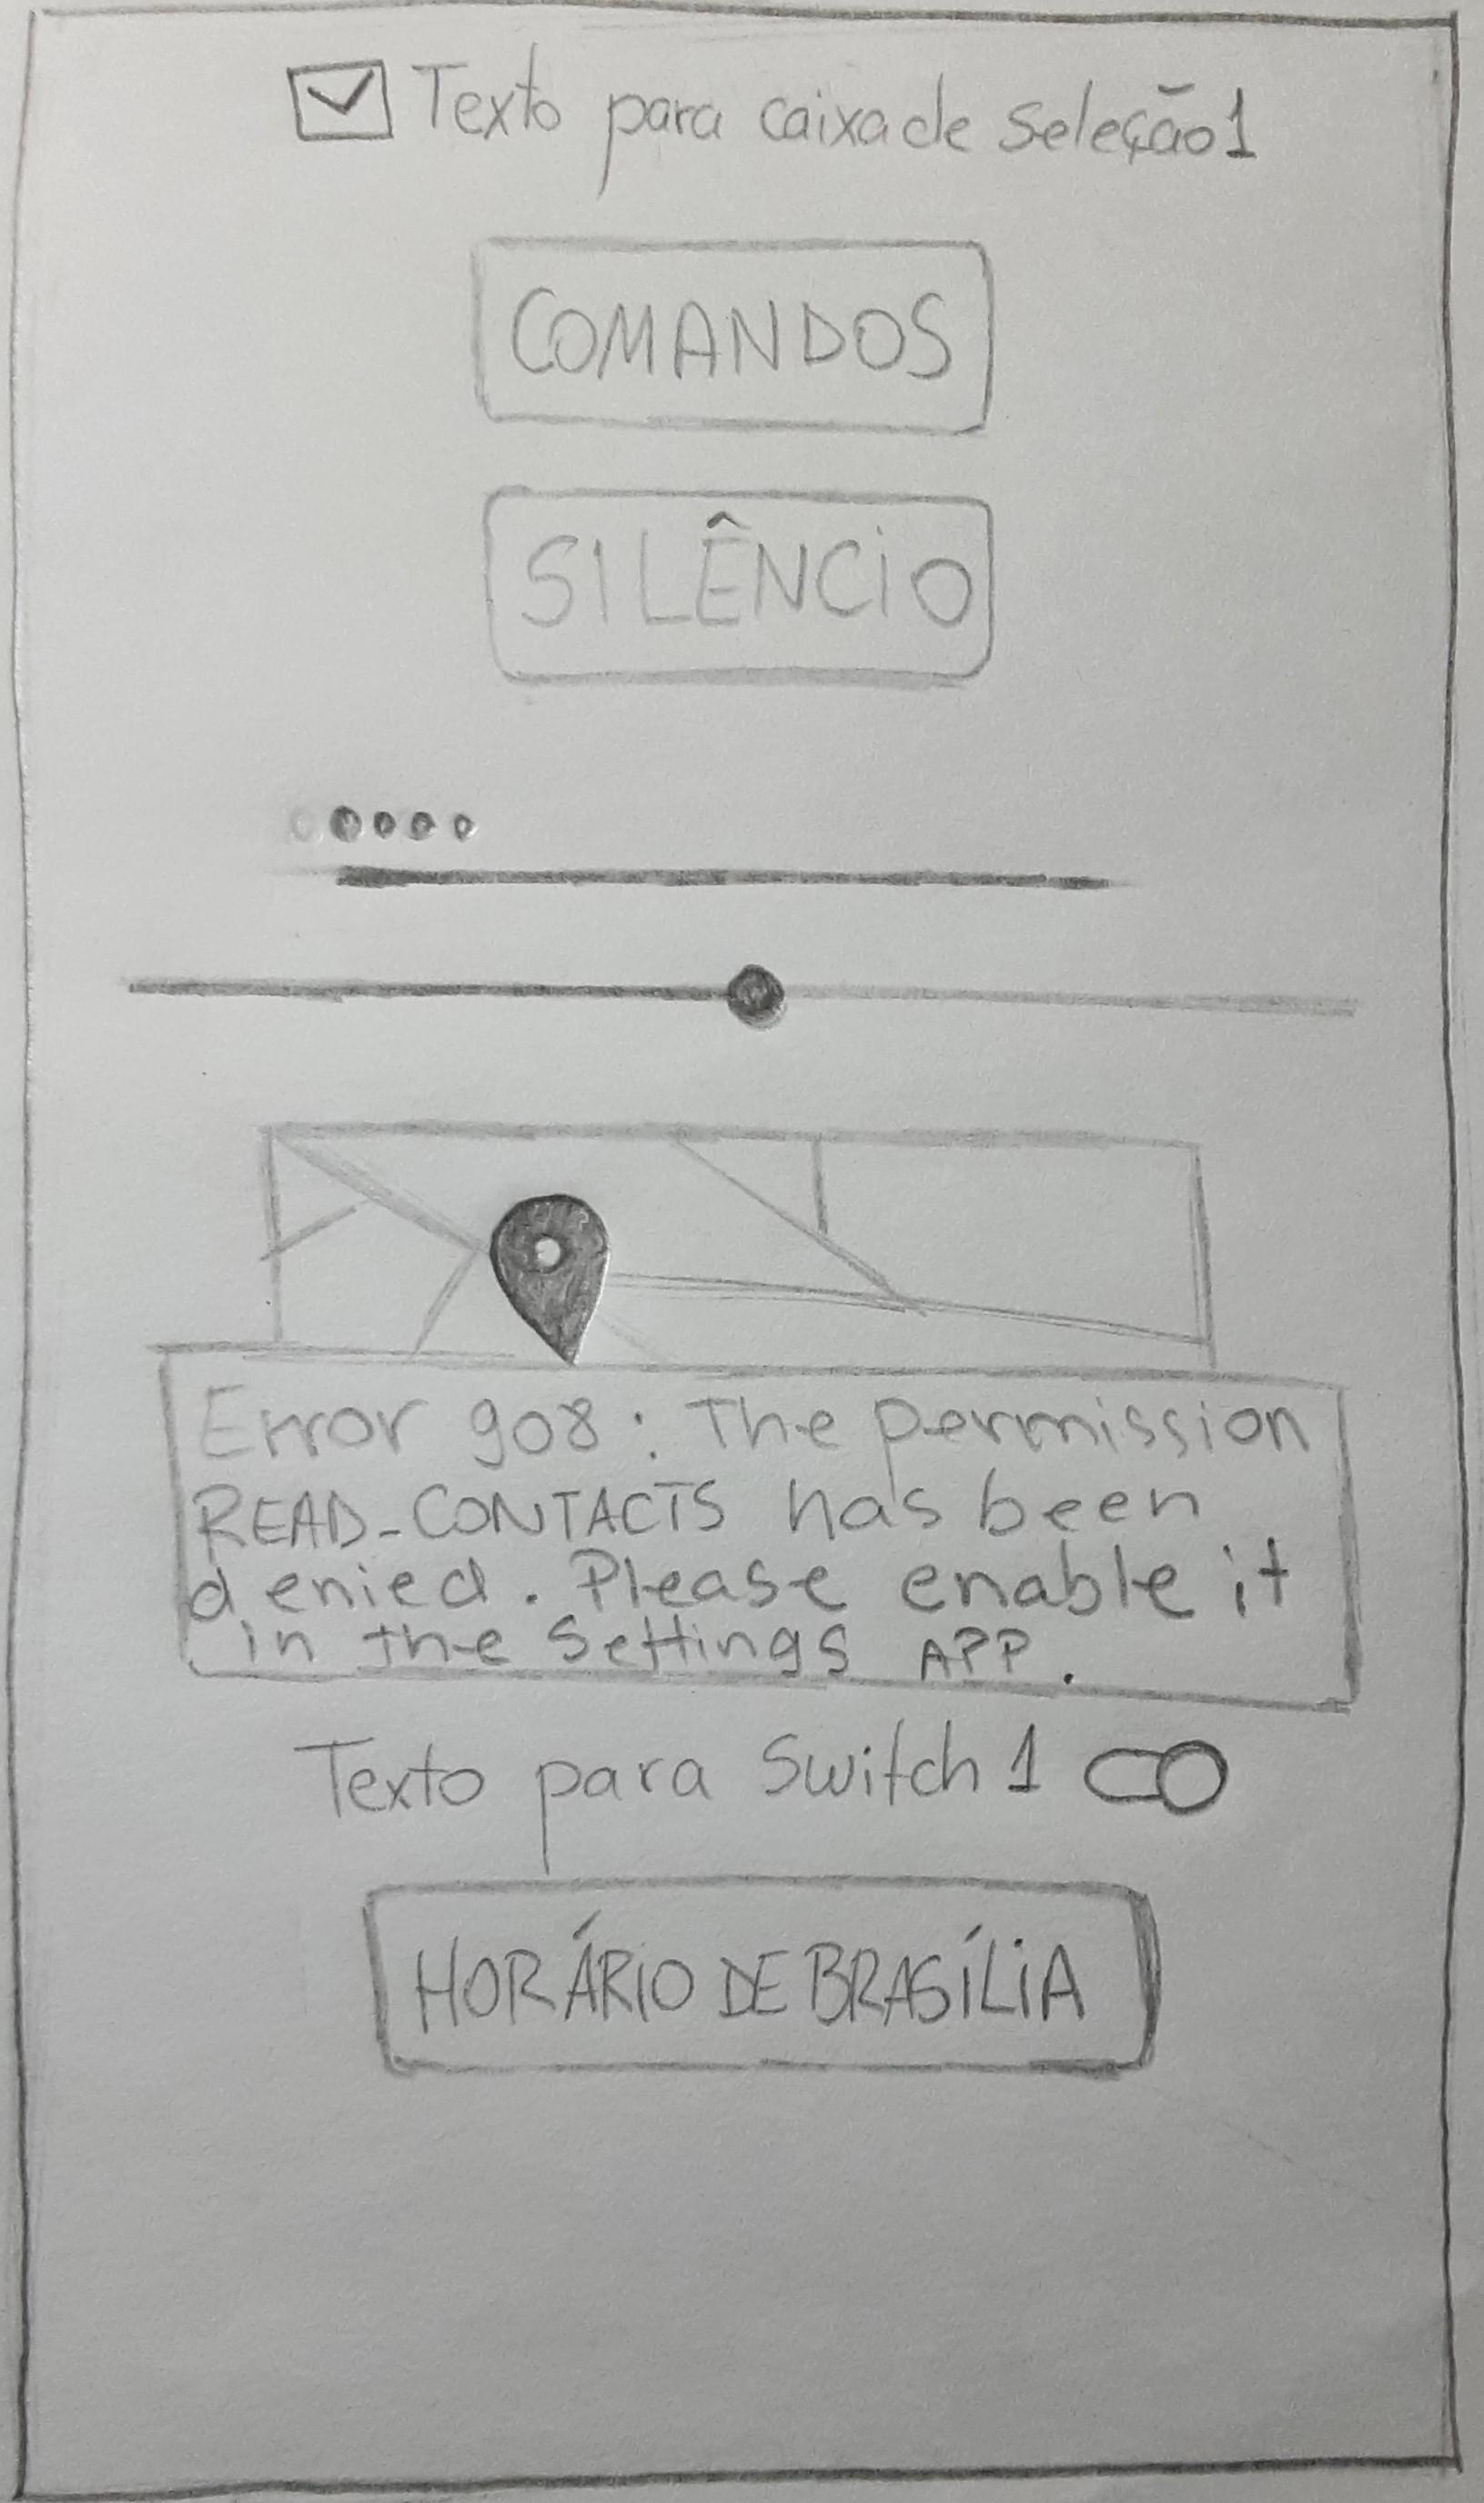 Texto para caixa de seleção 1
COMANDOS
SILÊNCIO
Error 908: The permission
READ_CONTACTS has been
denied. Please enable it
in the Settings APP.
Texto para Switch 1
HORÁRIO DE BRASÍLIA